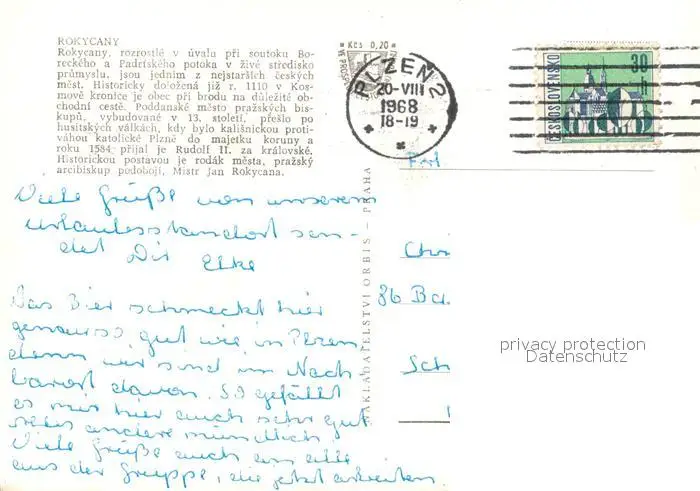 ROKYCANY
Rokycany, rozrostlé v úvalu při soutoku Bo-
reckého a Padrťského potoka v živé středisko
průmyslu, jsou jedním z nejstarších českých
měst. Historicky doložená již r. 1110 v Kos-
mově kronice je obec při brodu na důležité ob-
chodní cestě. Poddanské město pražských bis-
kupů, vybudované v 13. století, přešlo po
husitských válkách, kdy bylo kališnickou proti-
váhou katolické Plzně do majetku koruny a
roku 1584 přijal je Rudolf II. za královské.
Historickou postavou je rodák města, pražský
arcibiskup podobojí, Mistr Jan Rokycana.
Kčs 0,20
PLZEŇ 2
20-VIII
1968
18-19
ČESKOSLOVENSKO
30
h
Frl
Viele Grüße von unserem
Urlaubsstandort sen-
det Dir Elke
Das Bier schmeckt hier
genauso gut wie in Pilzen,
denn wir sind im Nach-
barort davon. So gefällt
es mir hier auch sehr gut
alles andere mündlich.
Viele Grüße auch an alle
aus der Gruppe, die jetzt arbeiten
NAKLADATELSTVÍ ORBIS — PRAHA
Chr
86 Ba
Sch
privacy protection
Datenschutz